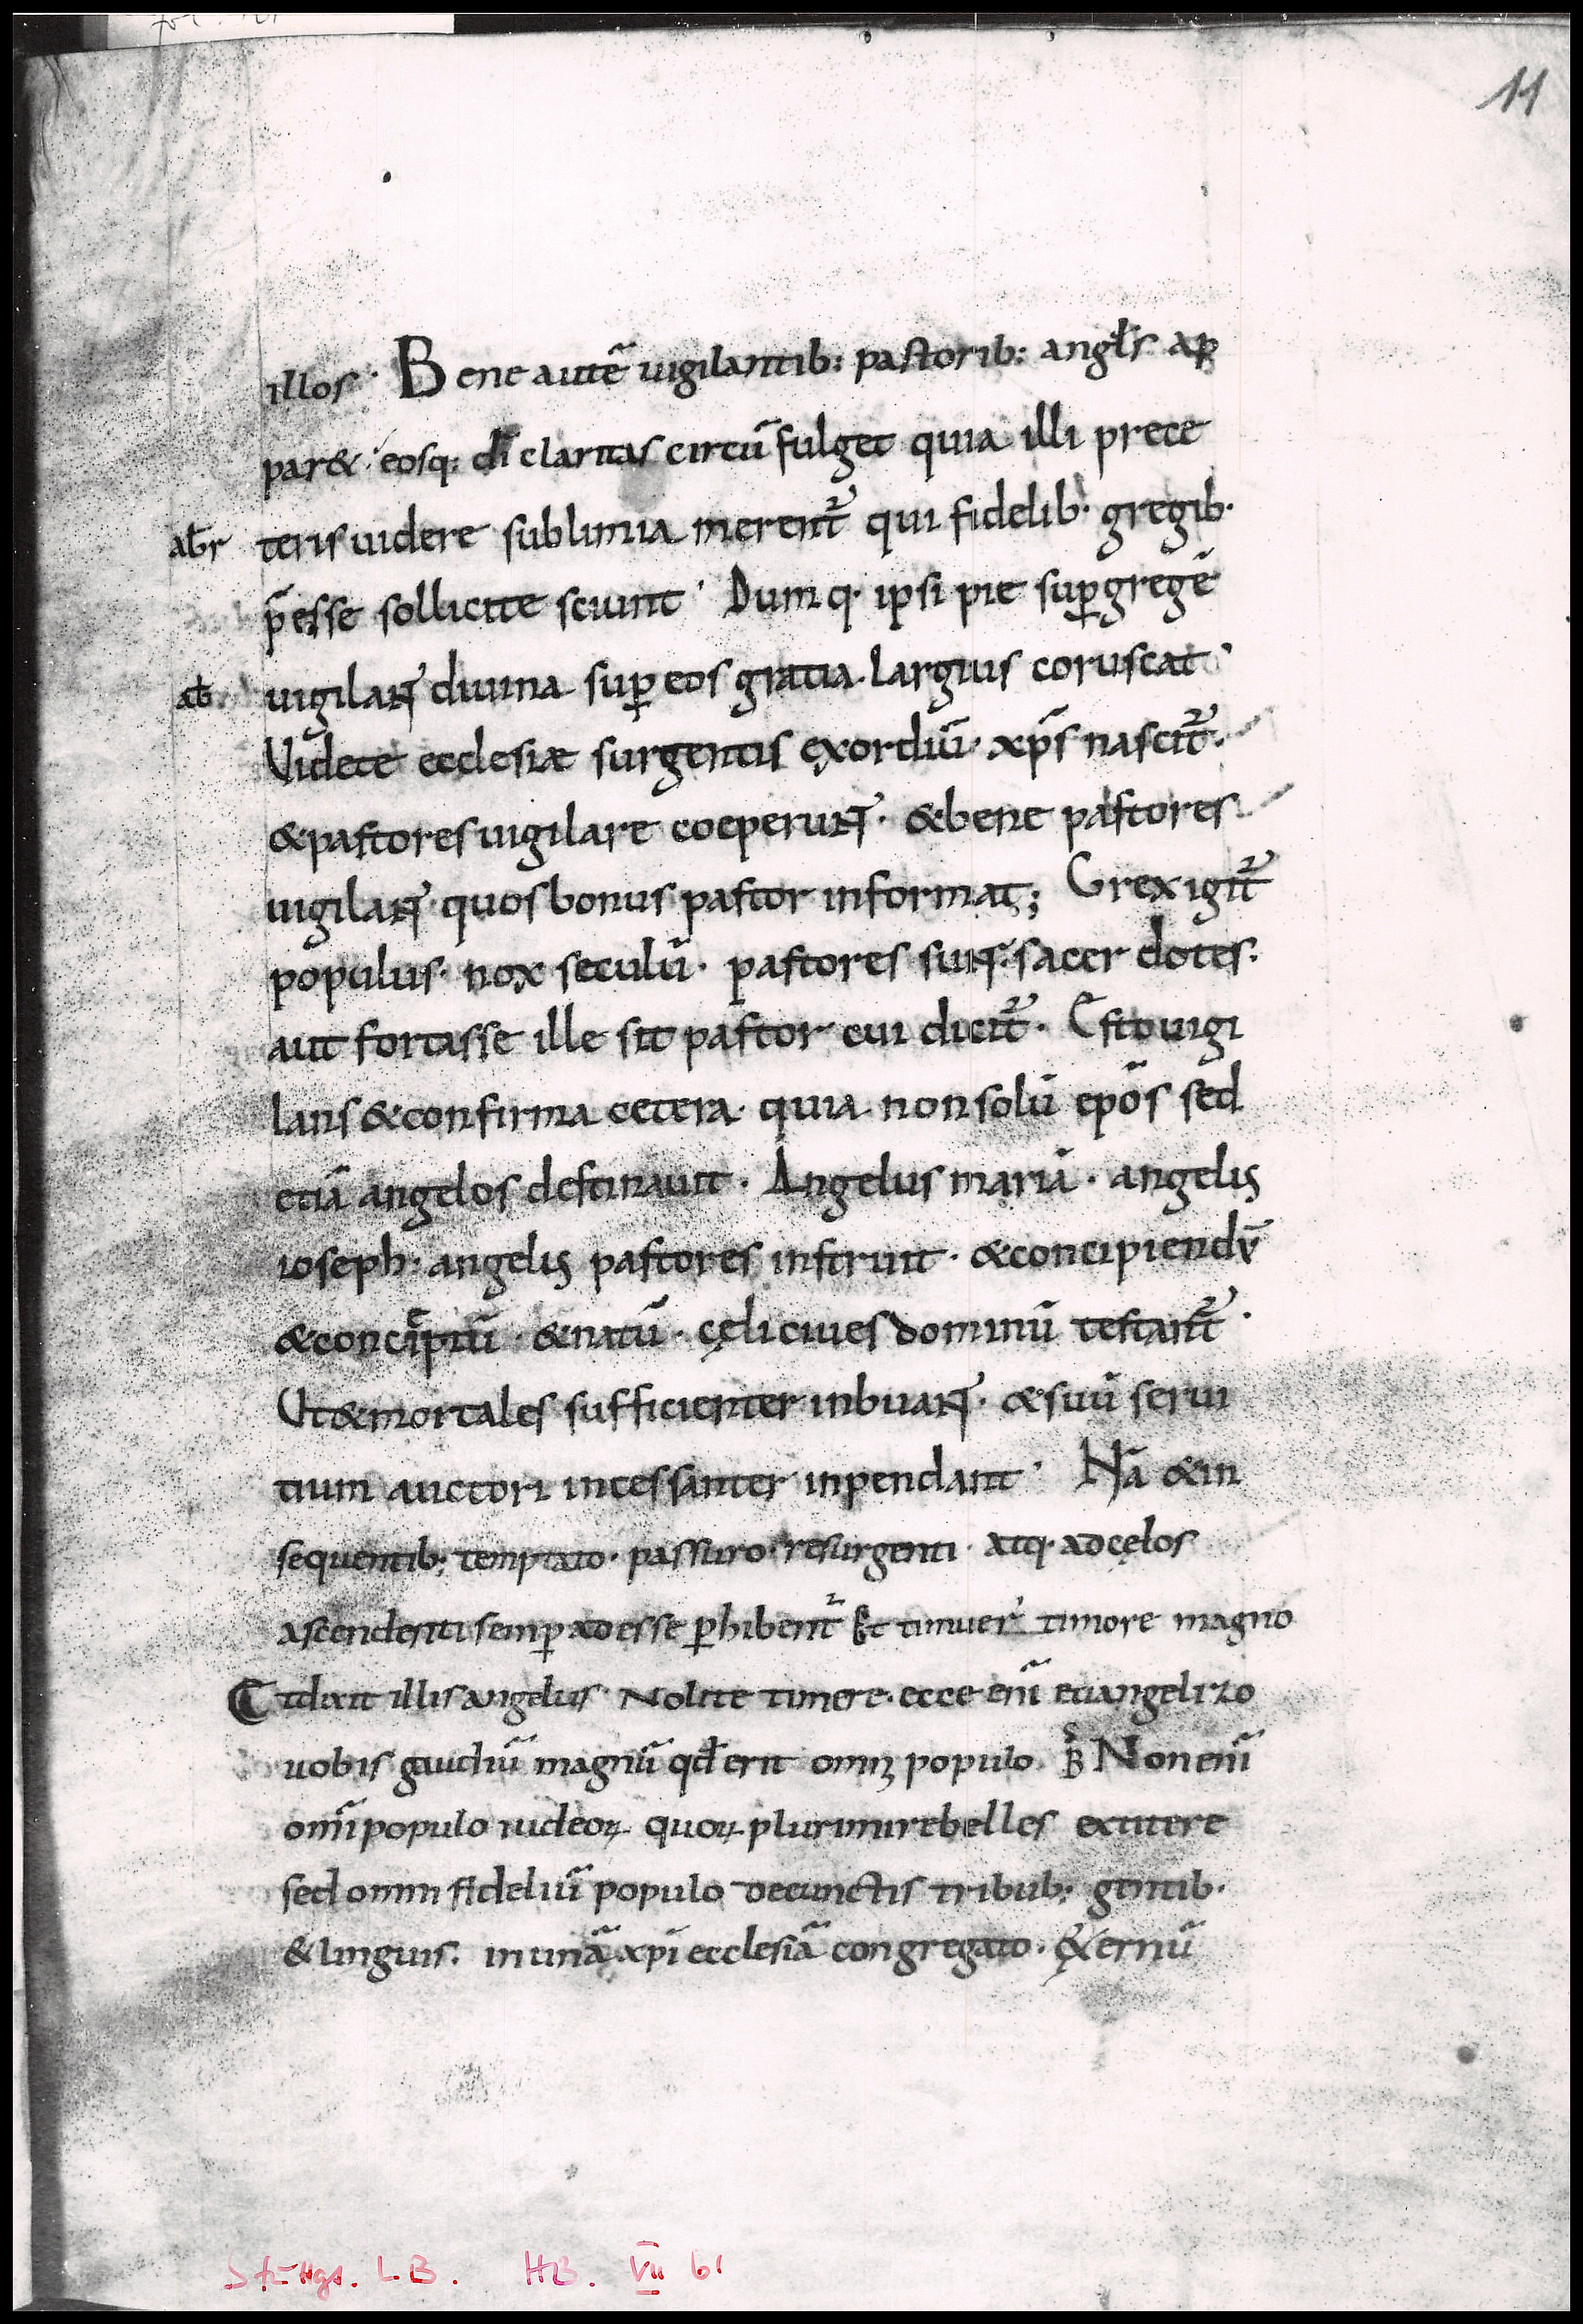 11
illos · Bene autẽ uigilantib: pastorib: angl̃s ap
par& · eosq: dĩ claritas circũfulget quia illi prece
abr teris uidere sublimia merent᷑ qui fidelib· gregib·
p̃esse sollicite sciunt · Dumq· ipsi pie suꝑ gregẽ
ab uigilant diuina suꝑ eos gratia largius coruscat ·
Videte ecclesiæ surgentis exordiũ · xp̃s nascit᷑ ·
& pastores uigilare coeperunt · & bene pastores
uigilant · quos bonus pastor informat; Grex igit᷑
populus · nox seculũ · pastores sunt · sacerdotes ·
aut fortasse ille sit pastor cui dicit᷑ · Esto uigi
lans & confirma cetera · quia non solũ ep̃os sed
etiã angelos destinauit · Angelus mariã · angelus
ioseph · angelus pastores instruit · & concipiendũ
& conceptũ · & natũ · cęli ciues dominũ testant᷑ ·
Vt & mortales sufficienter inbuant · & suũ serui
tium auctori incessanter inpendant · Nã & in
sequentib; temptato · passuro · resurgenti · atq· ad cęlos
ascendenti semꝑ adesse ꝑhibent᷑ Et timuer̃ timore magno
Et dixit illis angelus · Nolite timere · ecce eni᷑ euangelizo
uobis gaudiũ magnũ qd̃ erit omni populo · B Non eni᷑
om̃i populo iudeoꝝ quoꝝ plurimi rebelles extitere
sed omni fideliũ populo de cunctis tribub: gentib·
& linguis · in unã xp̃i ecclesiã congregato · &ernũ
Stuttgt. L.B. HB. VII 61